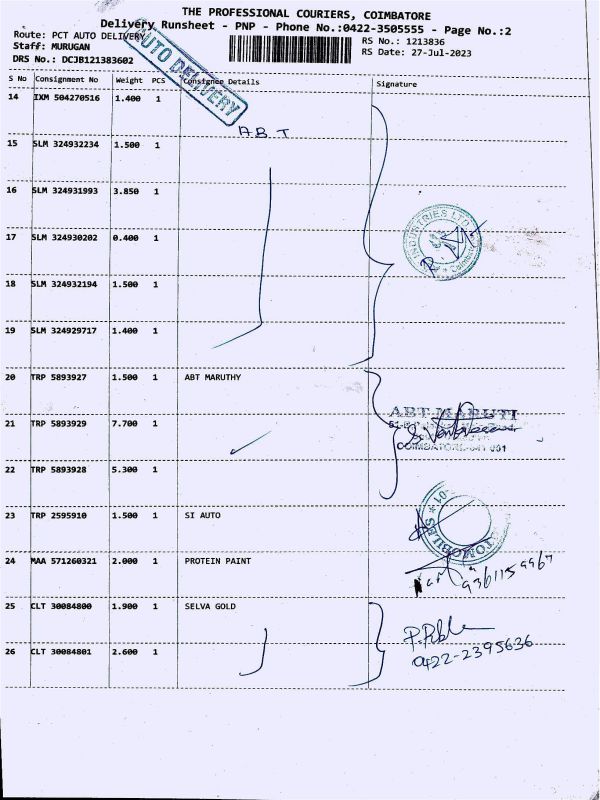 THE PROFESSIONAL COURIERS, COIMBATORE
Delivery Runsheet - PNP - Phone No.:0422-3505555 - Page No.:2
Route: PCT AUTO DELIVERY
RS No.: 1213836
Staff: MURUGAN
RS Date: 27-Jul-2023
DRS No.: DCJB121383602
AUTO DELIVERY
S No Consignment No Weight PCS Consignee Details Signature
14 IXM 504270516 1.400 1
A B T
15 SLM 324932234 1.500 1
16 SLM 324931993 3.850 1
INDUSTRIES LTD
17 SLM 324930202 0.400 1
18 SLM 324932194 1.500 1
19 SLM 324929717 1.400 1
20 TRP 5893927 1.500 1 ABT MARUTHY
ABT MARUTI
21 TRP 5893929 7.700 1
22 TRP 5893928 5.300 1
23 TRP 2595910 1.500 1 SI AUTO
24 MAA 571260321 2.000 1 PROTEIN PAINT
9361159967
25 CLT 30084800 1.900 1 SELVA GOLD
0422-2395636
26 CLT 30084801 2.600 1